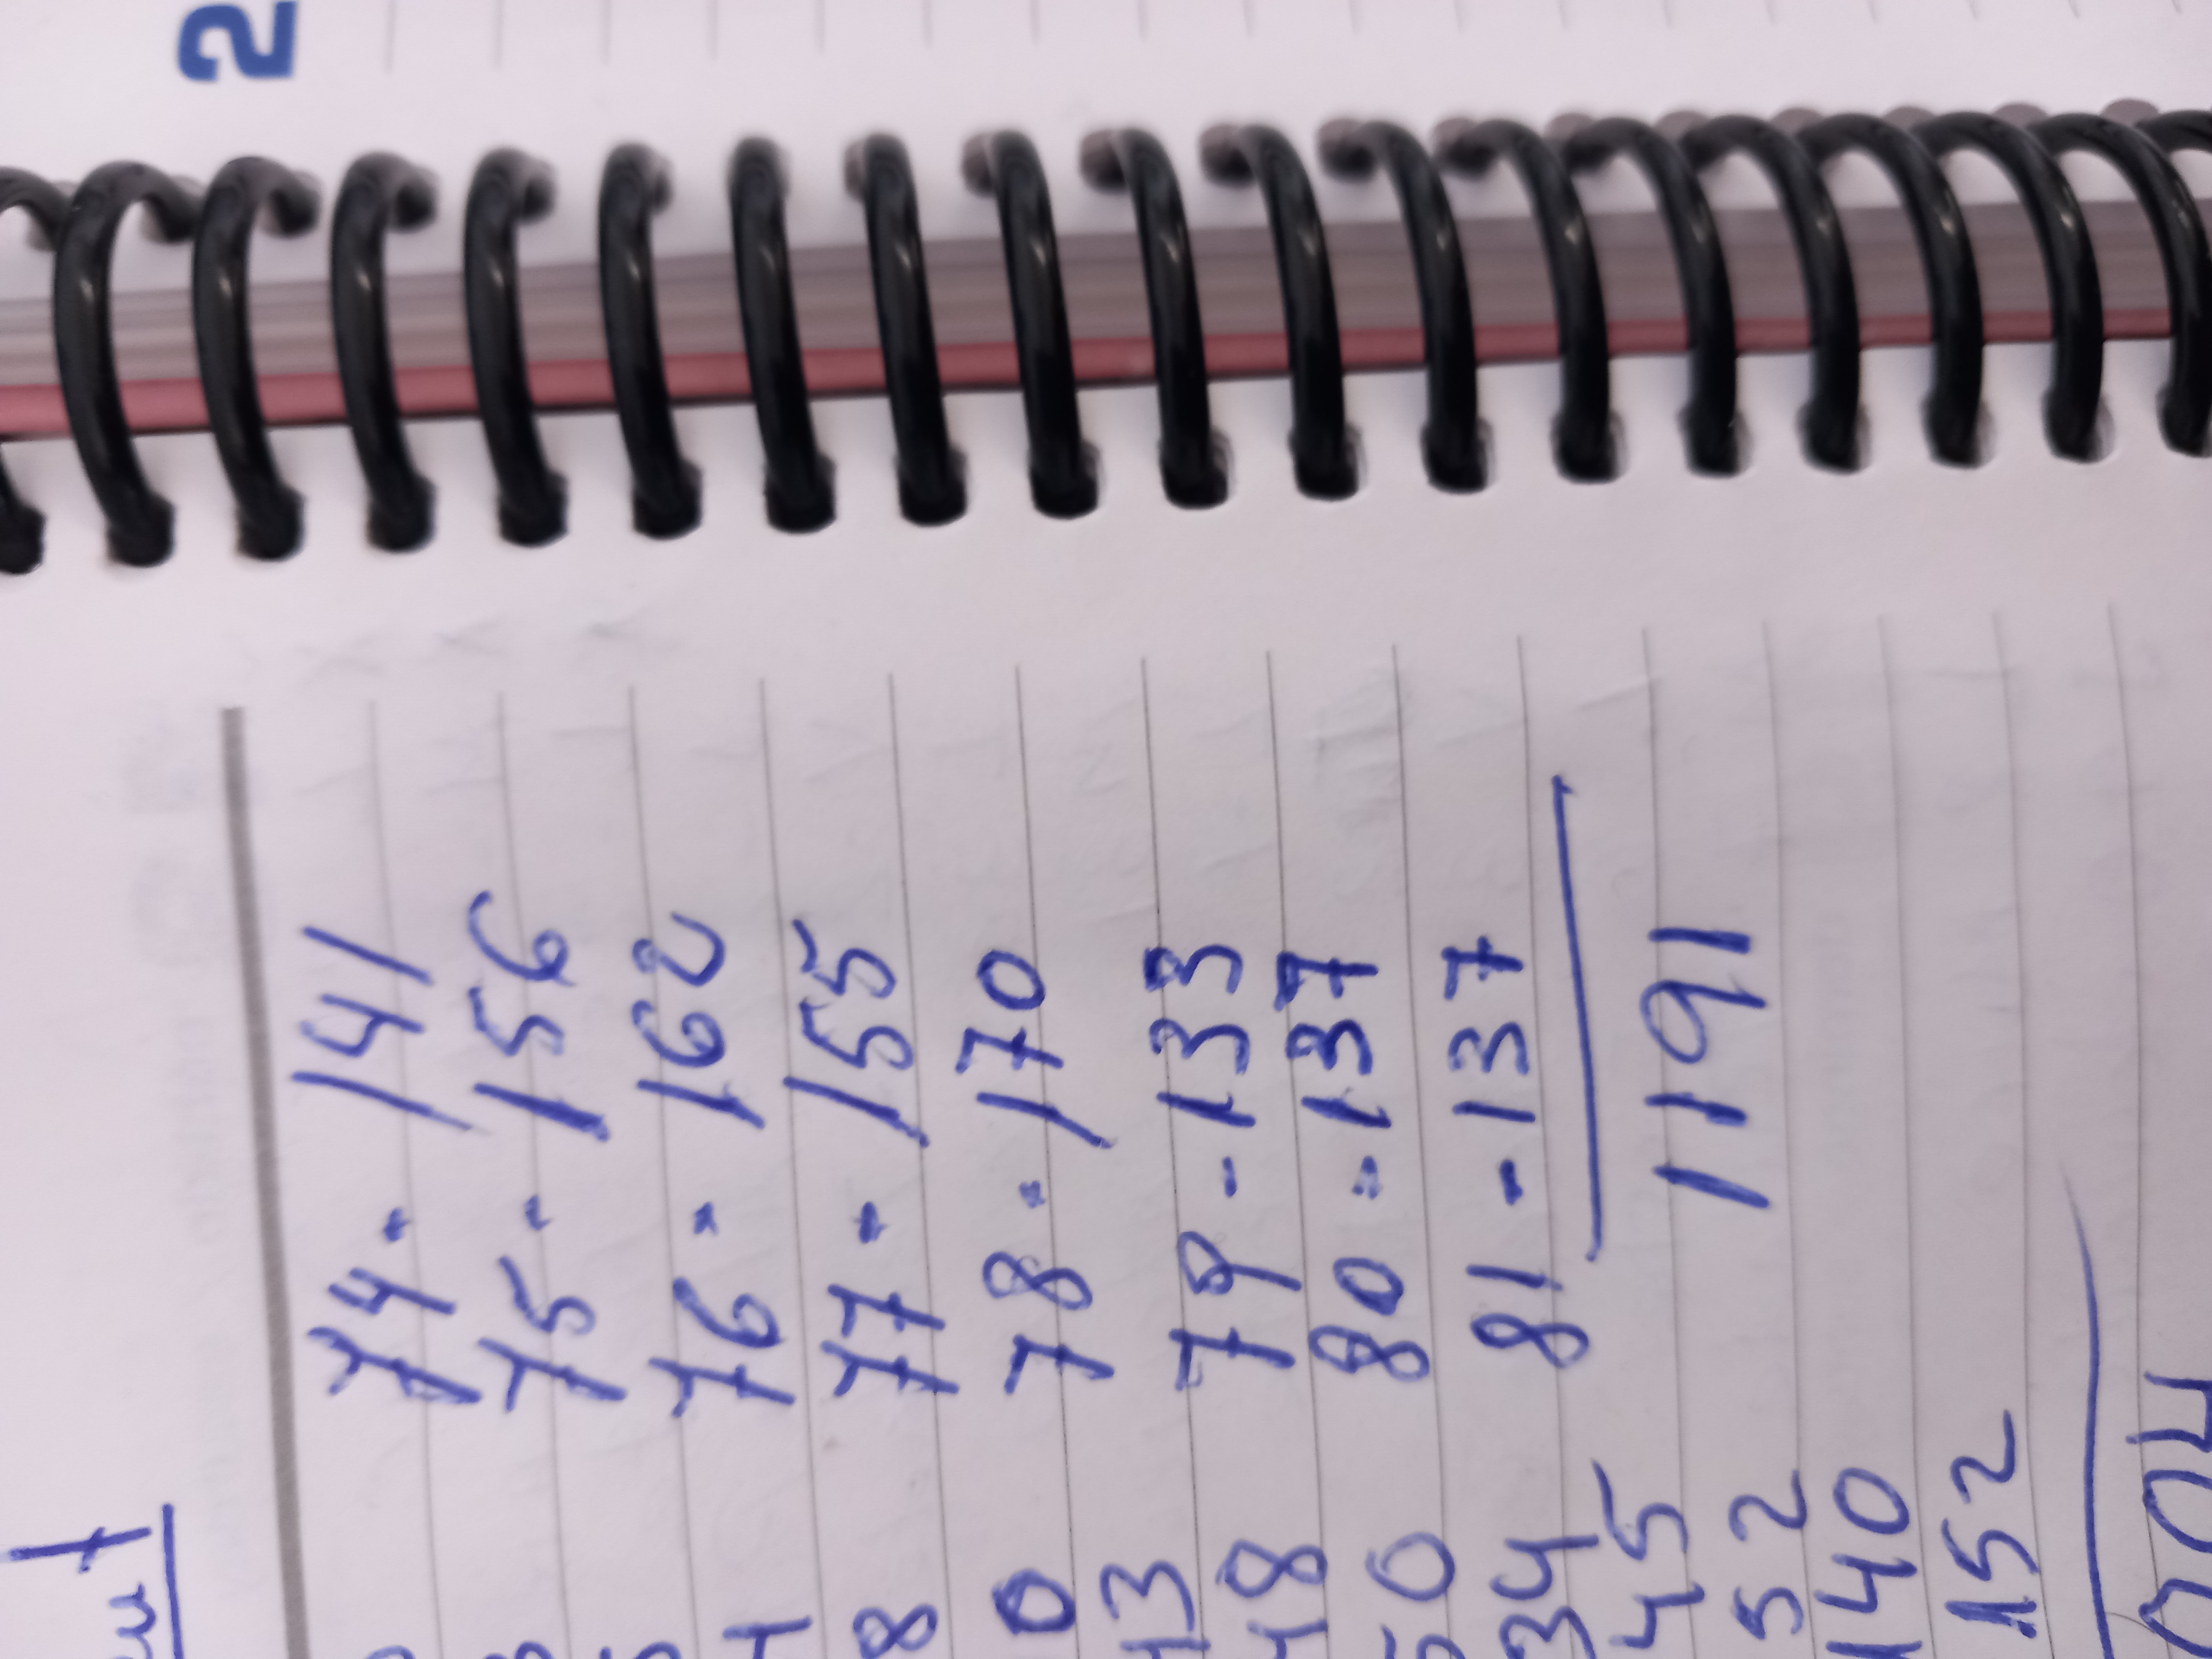 2
74 - 141
75 - 156
76 - 162
77 - 155
78 - 170
79 - 133
80 - 137
81 - 137
1191
8
0
13
48
50
34
45
52
140
152